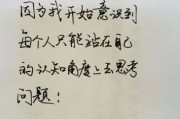 因为我开始意识到
每个人只能站在自己
的认知角度上去思考
问题！